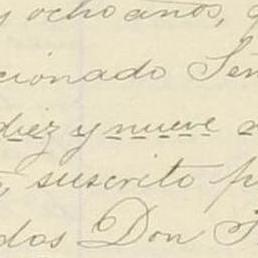 y ocho años,
cionado Señ
diez y nueve
suscrito p
dos Don